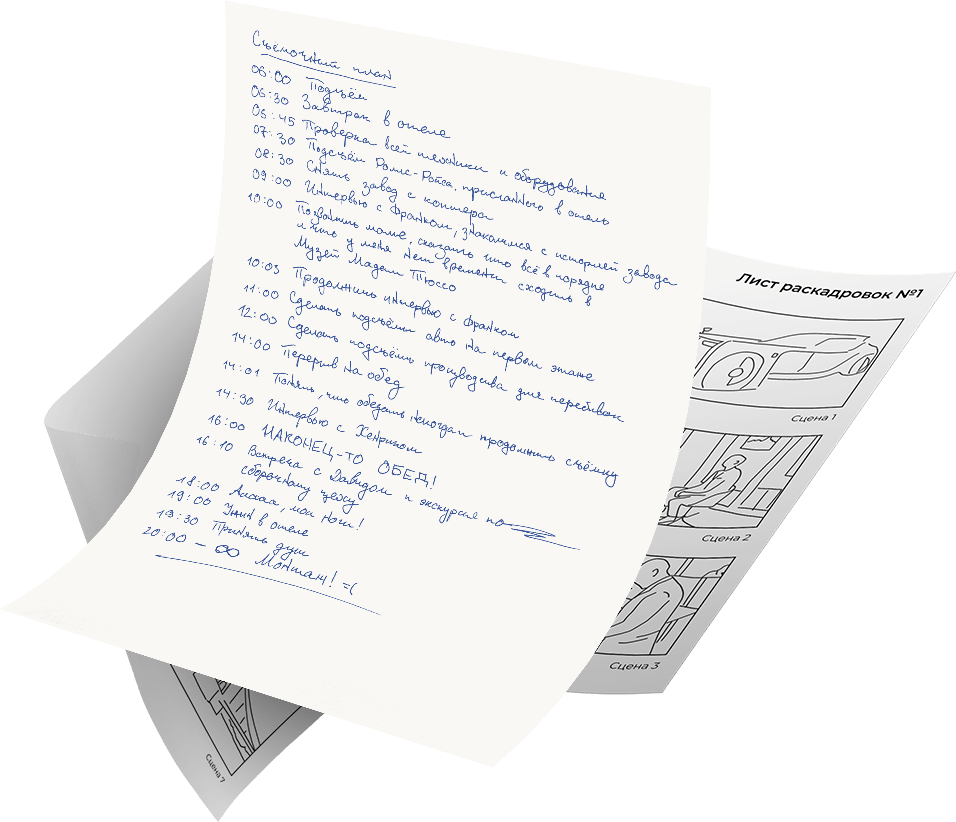 Съёмочный план
06:00 Подъём
06:30 Завтрак в отеле
06:45 Проверка всей техники и оборудования
07:30 Подсъём Ролс-Ройса, присланного в отель
08:30 Снять завод с коптера
09:00 Интервью с Франком, знакомимся с историей завода
10:00 Позвонить маме, сказать что всё в порядке
и что у меня нет времени сходить в
Музей Мадам Тюссо
10:03 Продолжить интервью с Франком
11:00 Сделать подсъёмы авто на первом этаже
12:00 Сделать подсъёмы производства для перебивок
14:00 Перерыв на обед
14:01 Понять, что обедать некогда и продолжить съёмку
14:30 Интервью с Хенриком
16:00 НАКОНЕЦ-ТО ОБЕД!
16:10 Встреча с Давидом и экскурсия по
сборочному цеху
18:00 Аааа, мои ноги!
19:00 Ужин в отеле
19:30 Принять душ
20:00 – ∞ Монтаж! =(
Лист раскадровок №1
Сцена 1
Сцена 2
Сцена 3
Сцена 7